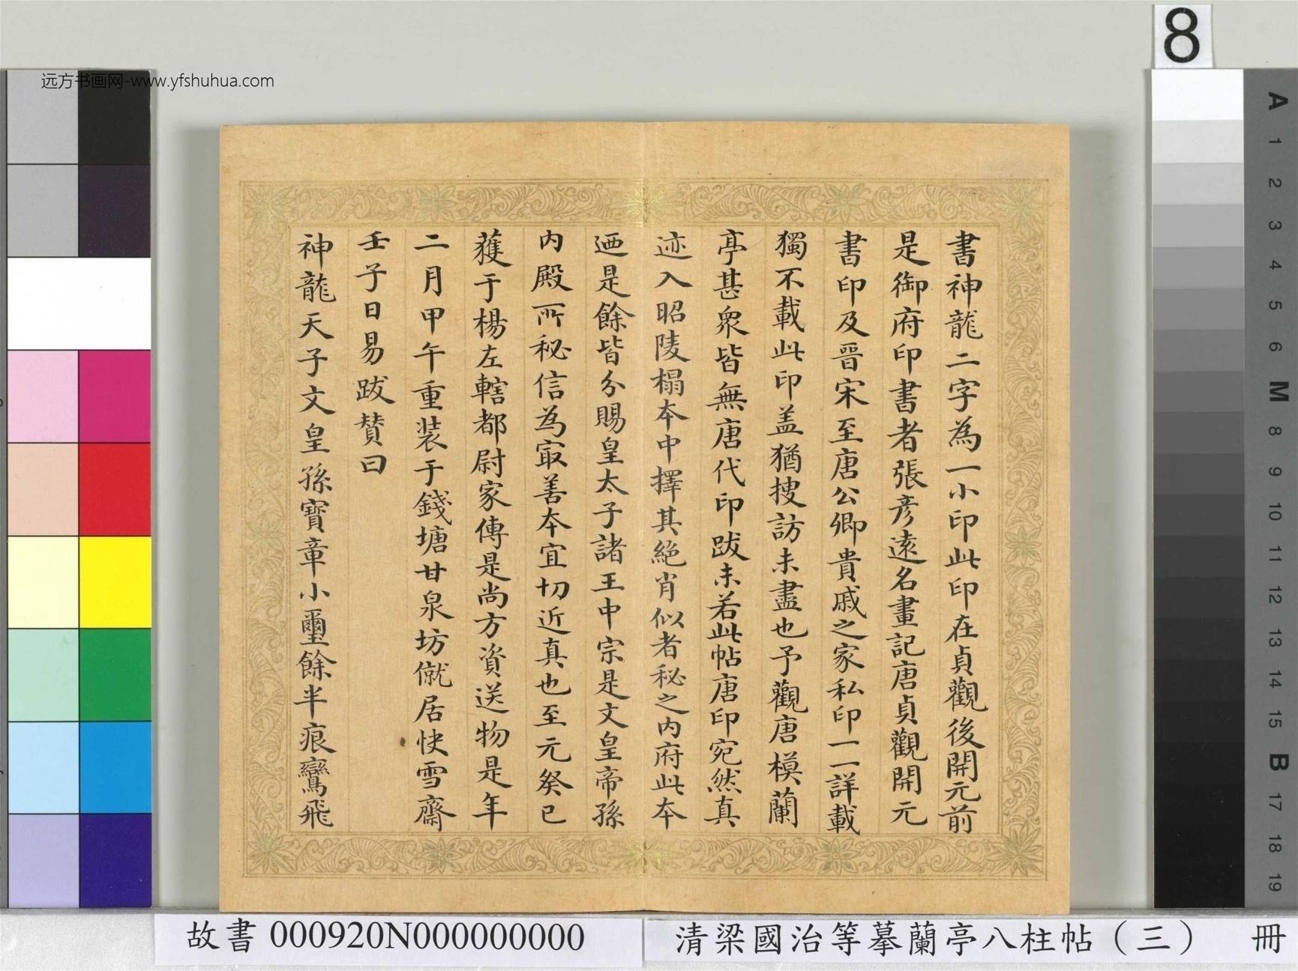 远方书画网-www.yfshuhua.com
8
書神龍二字為一小印此印在貞觀後開元前
是御府印書者張彥遠名畫記唐貞觀開元
書印及晉宋至唐公卿貴戚之家私印一一詳載
獨不載此印盖猶搜訪未盡也予觀唐模蘭
亭甚衆皆無唐代印跋未若此帖唐印宛然真
迹入昭陵榻本中擇其絶肖似者秘之内府此本
迺是餘皆分賜皇太子諸王中宗是文皇帝孫
内殿所秘信為㝡善本宜切近真也至元癸巳
獲于楊左轄都尉家傳是尚方資送物是年
二月甲午重装于錢塘甘泉坊僦居快雪齋
壬子日易跋賛曰
神龍天子文皇孫寳章小璽餘半痕鸞飛
A 1 2 3 4 5 6 M 8 9 10 11 12 13 14 15 B 17 18 19
故書 000920N000000000
清梁國治等摹蘭亭八柱帖（三） 冊